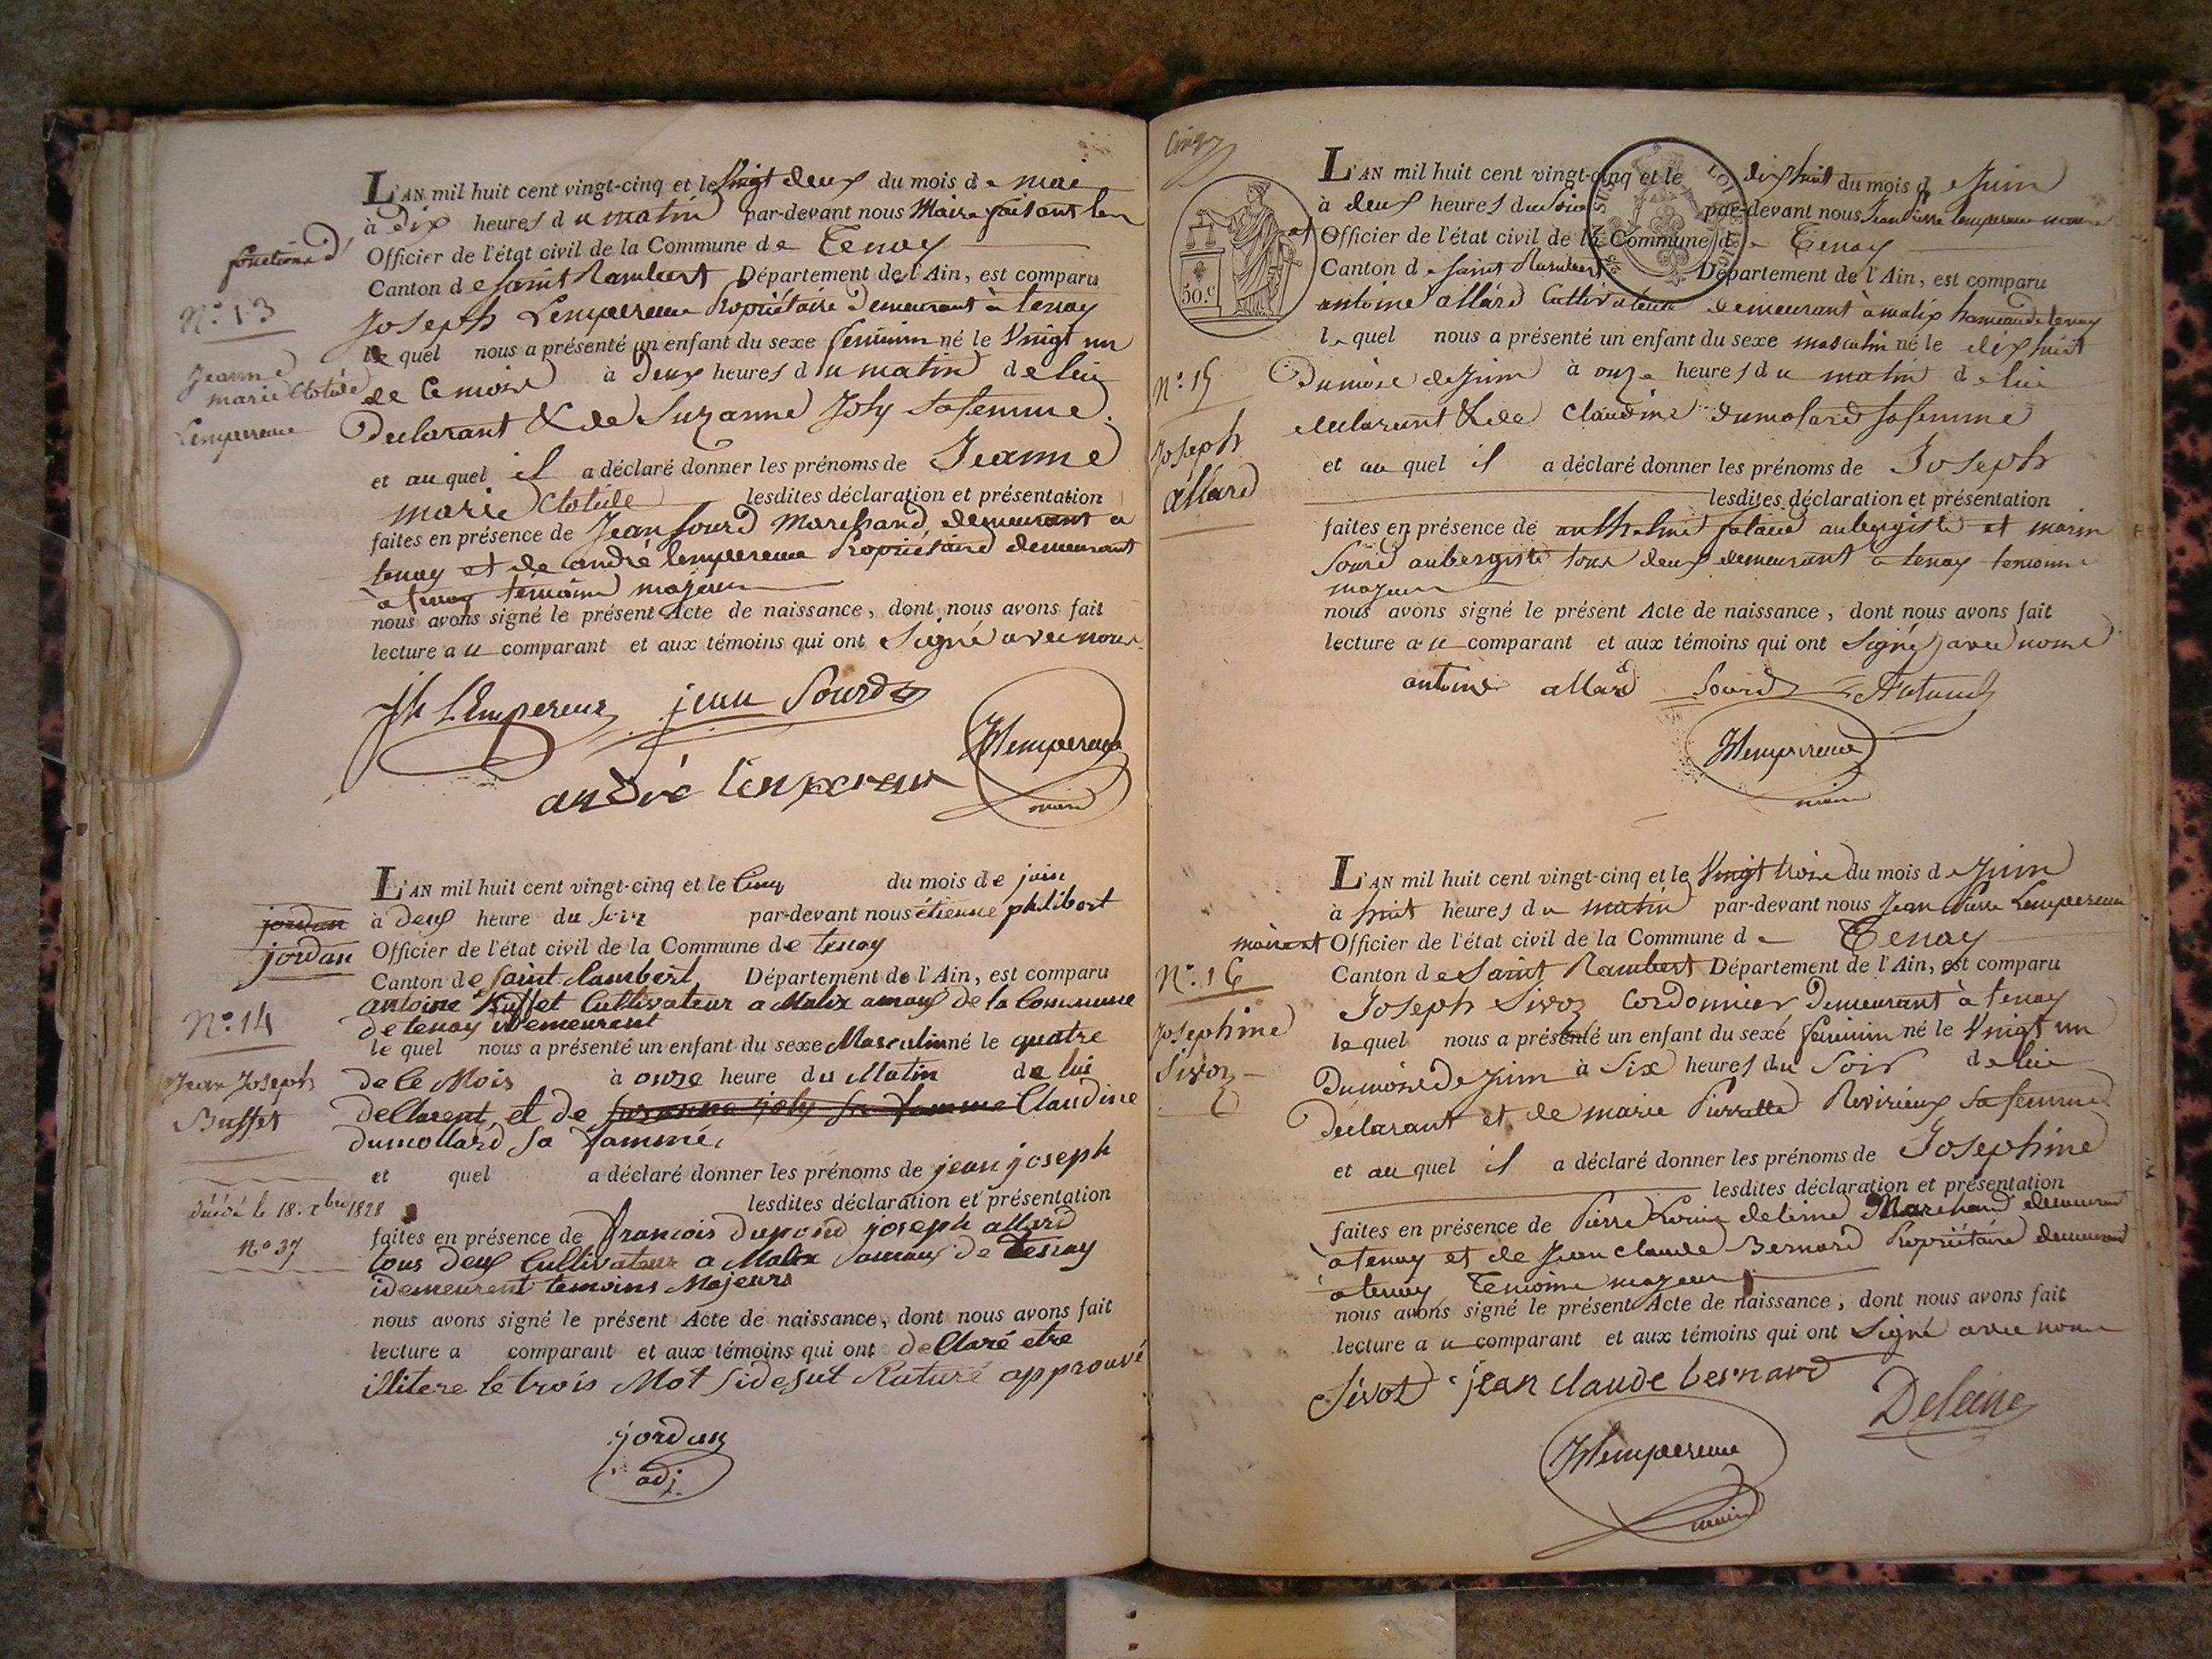 L'AN mil huit cent vingt-cinq et le Vingt deux du mois de mai
à dix heures du matin par-devant nous Maire faisant les
fonctions d'
Officier de l'état civil de la Commune de Tenay
Canton de Saint Rambert Département de l'Ain, est comparu
Joseph Lempereur Propriétaire Demeurant à tenay
N.° 13
le quel nous a présenté un enfant du sexe feminin né le Vingt un
Jeanne
marie Clotilde
Lempereur
de ce mois à deux heures du matin de lui
Declarant & de Suzanne Joly sa femme.
et au quel il a déclaré donner les prénoms de Jeanne
marie Clotilde lesdites déclaration et présentation
faites en présence de Jean Sourd Marchand demeurant a
tenay et de andré lempereur Propriétaire demeurant
à tenay temoins majeurs
nous avons signé le présent Acte de naissance, dont nous avons fait
lecture au comparant et aux témoins qui ont Signé avec nous
Jh LEmpereur jean Sourd
andré lenpereur
JPlempereur
maire
L'AN mil huit cent vingt-cinq et le Cinq du mois de juin
à deux heure du soir par-devant nous étienne philibert
jordan
jordan
Officier de l'état civil de la Commune de tenay
Canton de saint Rambert Département de l'Ain, est comparu
antoine Buffet Cultivateur a Malix amaux de la Commune
de tenay idemeurent
N.° 14
le quel nous a présenté un enfant du sexe Masculin né le quatre
Jean Joseph
Buffet
de le Mois à onze heure du Matin de lui
dellarent, et de suzanne joly sa famme Claudine
dumollard sa famme,
et quel a déclaré donner les prénoms de jean joseph
décédé le 18. xbre 1828
N° 37
lesdites déclaration et présentation
faites en présence de francois dupond joseph allard
tous deux Cultivateur a Malix amaux de Tenay
idemeurent temoins Majeurs
nous avons signé le présent Acte de naissance, dont nous avons fait
lecture a comparant et aux témoins qui ont dellaré etre
illitere le trois Mot sidesut Raturé approuvé
jordan
adj.
Cinq
50.c
L'AN mil huit cent vingt-cinq et le dix huit du mois de Juin
à deux heures du soir par-devant nous Jean Pierre lempereur maire
et Officier de l'état civil de la Commune de Tenay
Canton de Saint Rambert Département de l'Ain, est comparu
antoine allard Cultivateur demeurant à malix hameau de tenay
le quel nous a présenté un enfant du sexe masculin né le dix huit
N.° 15
Joseph
allard
Du mois de Juin à onze heures du matin de lui
declarant & de Claudine dumolard sa femme
et au quel il a déclaré donner les prénoms de Joseph
lesdites déclaration et présentation
faites en présence de anthelme aubergiste et marin
Sourd aubergiste tous deux demeurant a tenay temoins
majeurs
nous avons signé le présent Acte de naissance, dont nous avons fait
lecture au comparant et aux témoins qui ont Signé avec nous
antoine allard Sourd
JPlempereur
maire
L'AN mil huit cent vingt-cinq et le Vingt trois du mois de Juin
à huit heures du matin par-devant nous Jean Pierre Lempereur
maire et Officier de l'état civil de la Commune de Tenay
Canton de Saint Rambert Département de l'Ain, est comparu
N.° 16
Joseph Sivoz Cordonnier Demeurant à tenay
Josephine
Sivoz
le quel nous a présenté un enfant du sexe feminin né le Vingt un
Du mois de Juin à Six heures du Soir de lui
Declarant et de marie Pierrette Revirieux sa femme
et au quel il a déclaré donner les prénoms de Josephine
lesdites déclaration et présentation
faites en présence de Pierre Louis Marchand demeurant
à tenay et de Jean Claude Bernard Propriétaire demeurant
à tenay Temoins majeurs
nous avons signé le présent Acte de naissance, dont nous avons fait
lecture au comparant et aux témoins qui ont Signé avec nous
Sivoz jean claude bernard
JPlempereur
maire